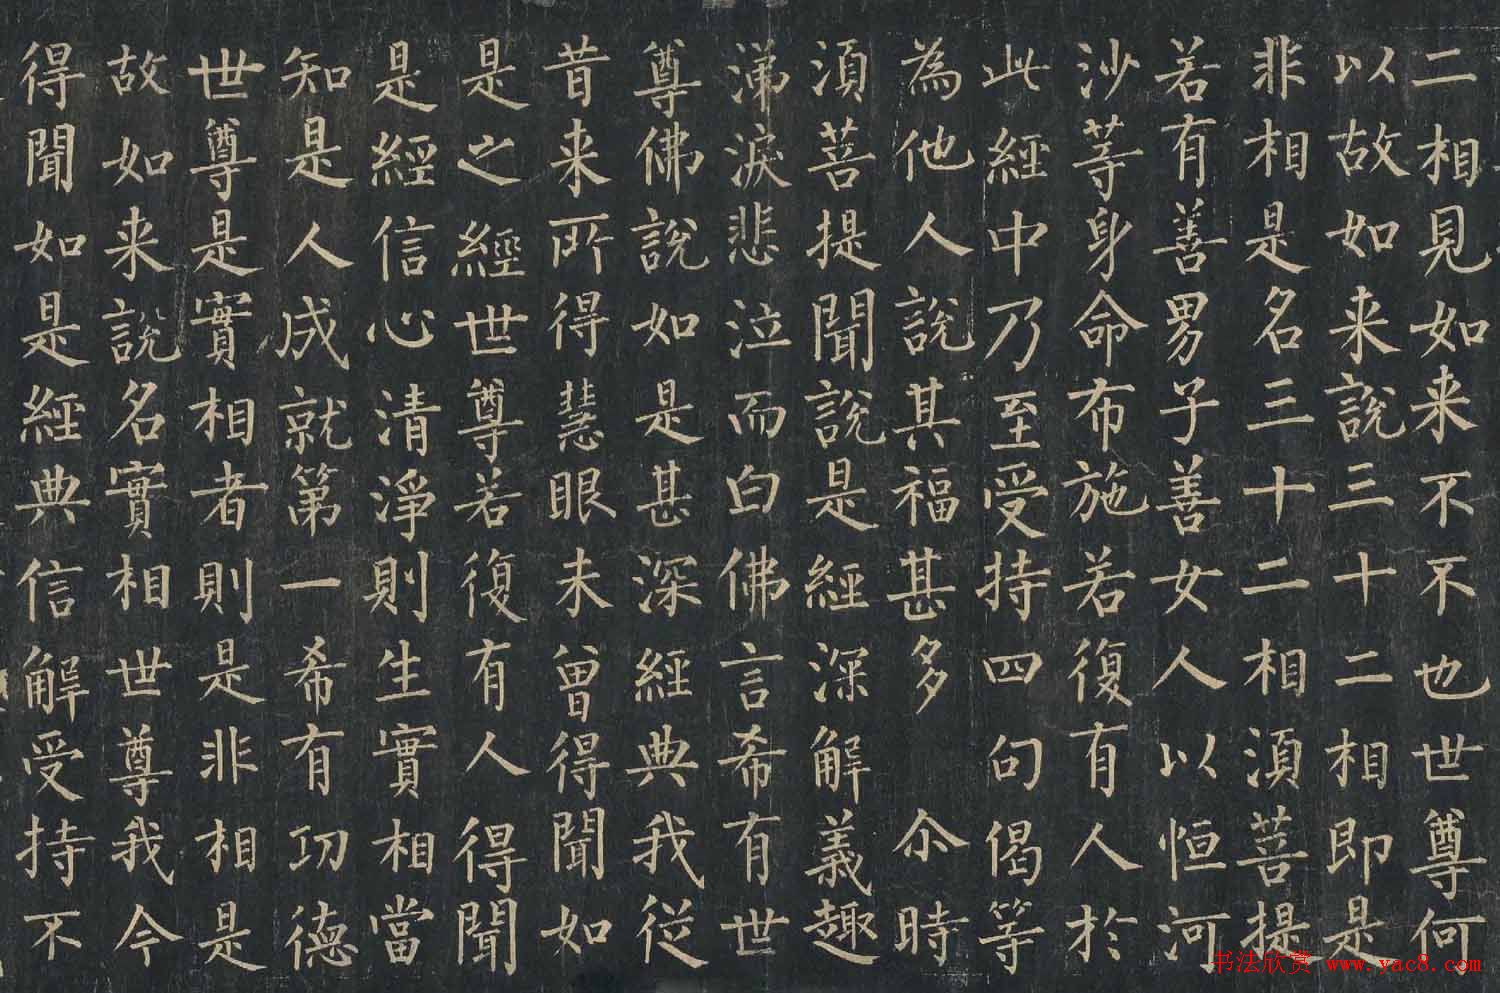 二相見如来不不也世尊何
以故如来說三十二相即是
非相是名三十二相湏菩提
若有善男子善女人以恒河
沙等身命布施若復有人於
此經中乃至受持四句偈等
為他人說其福甚多 尒時
湏菩提聞說是經深解義趣
涕淚悲泣而白佛言希有世
尊佛說如是甚深經典我從
昔来所得慧眼未曾得聞如
是之經世尊若復有人得聞
是經信心清淨則生實相當
知是人成就第一希有功德
世尊是實相者則是非相是
故如来說名實相世尊我今
得聞如是經典信解受持不
书法欣赏 www.yac8.com